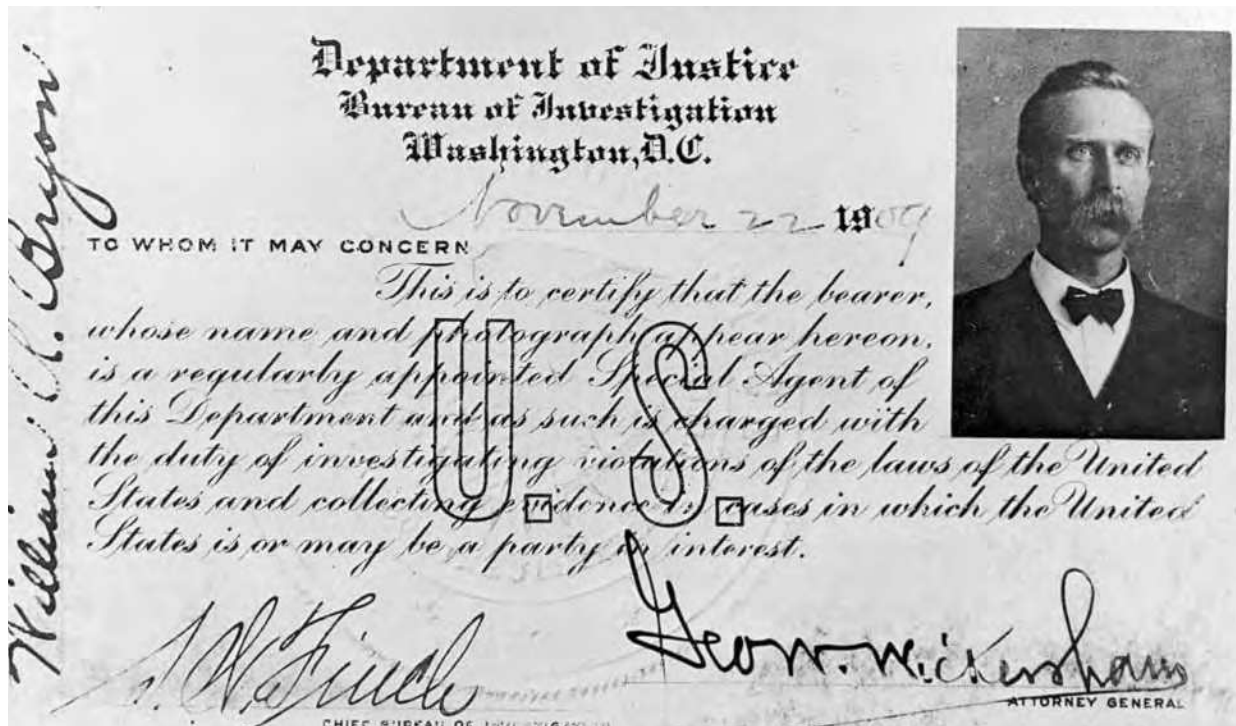 Department of Justice
Bureau of Investigation
Washington, D.C.
November 22 1909
TO WHOM IT MAY CONCERN
This is to certify that the bearer,
whose name and photograph appear hereon,
is a regularly appointed Special Agent of
this Department and as such is charged with
the duty of investigating violations of the laws of the United
States and collecting evidence in cases in which the United
States is or may be a party in interest.
U.S.
S. W. Finch
CHIEF BUREAU OF INVESTIGATION
Geo. W. Wickersham
ATTORNEY GENERAL
William A. Bryon